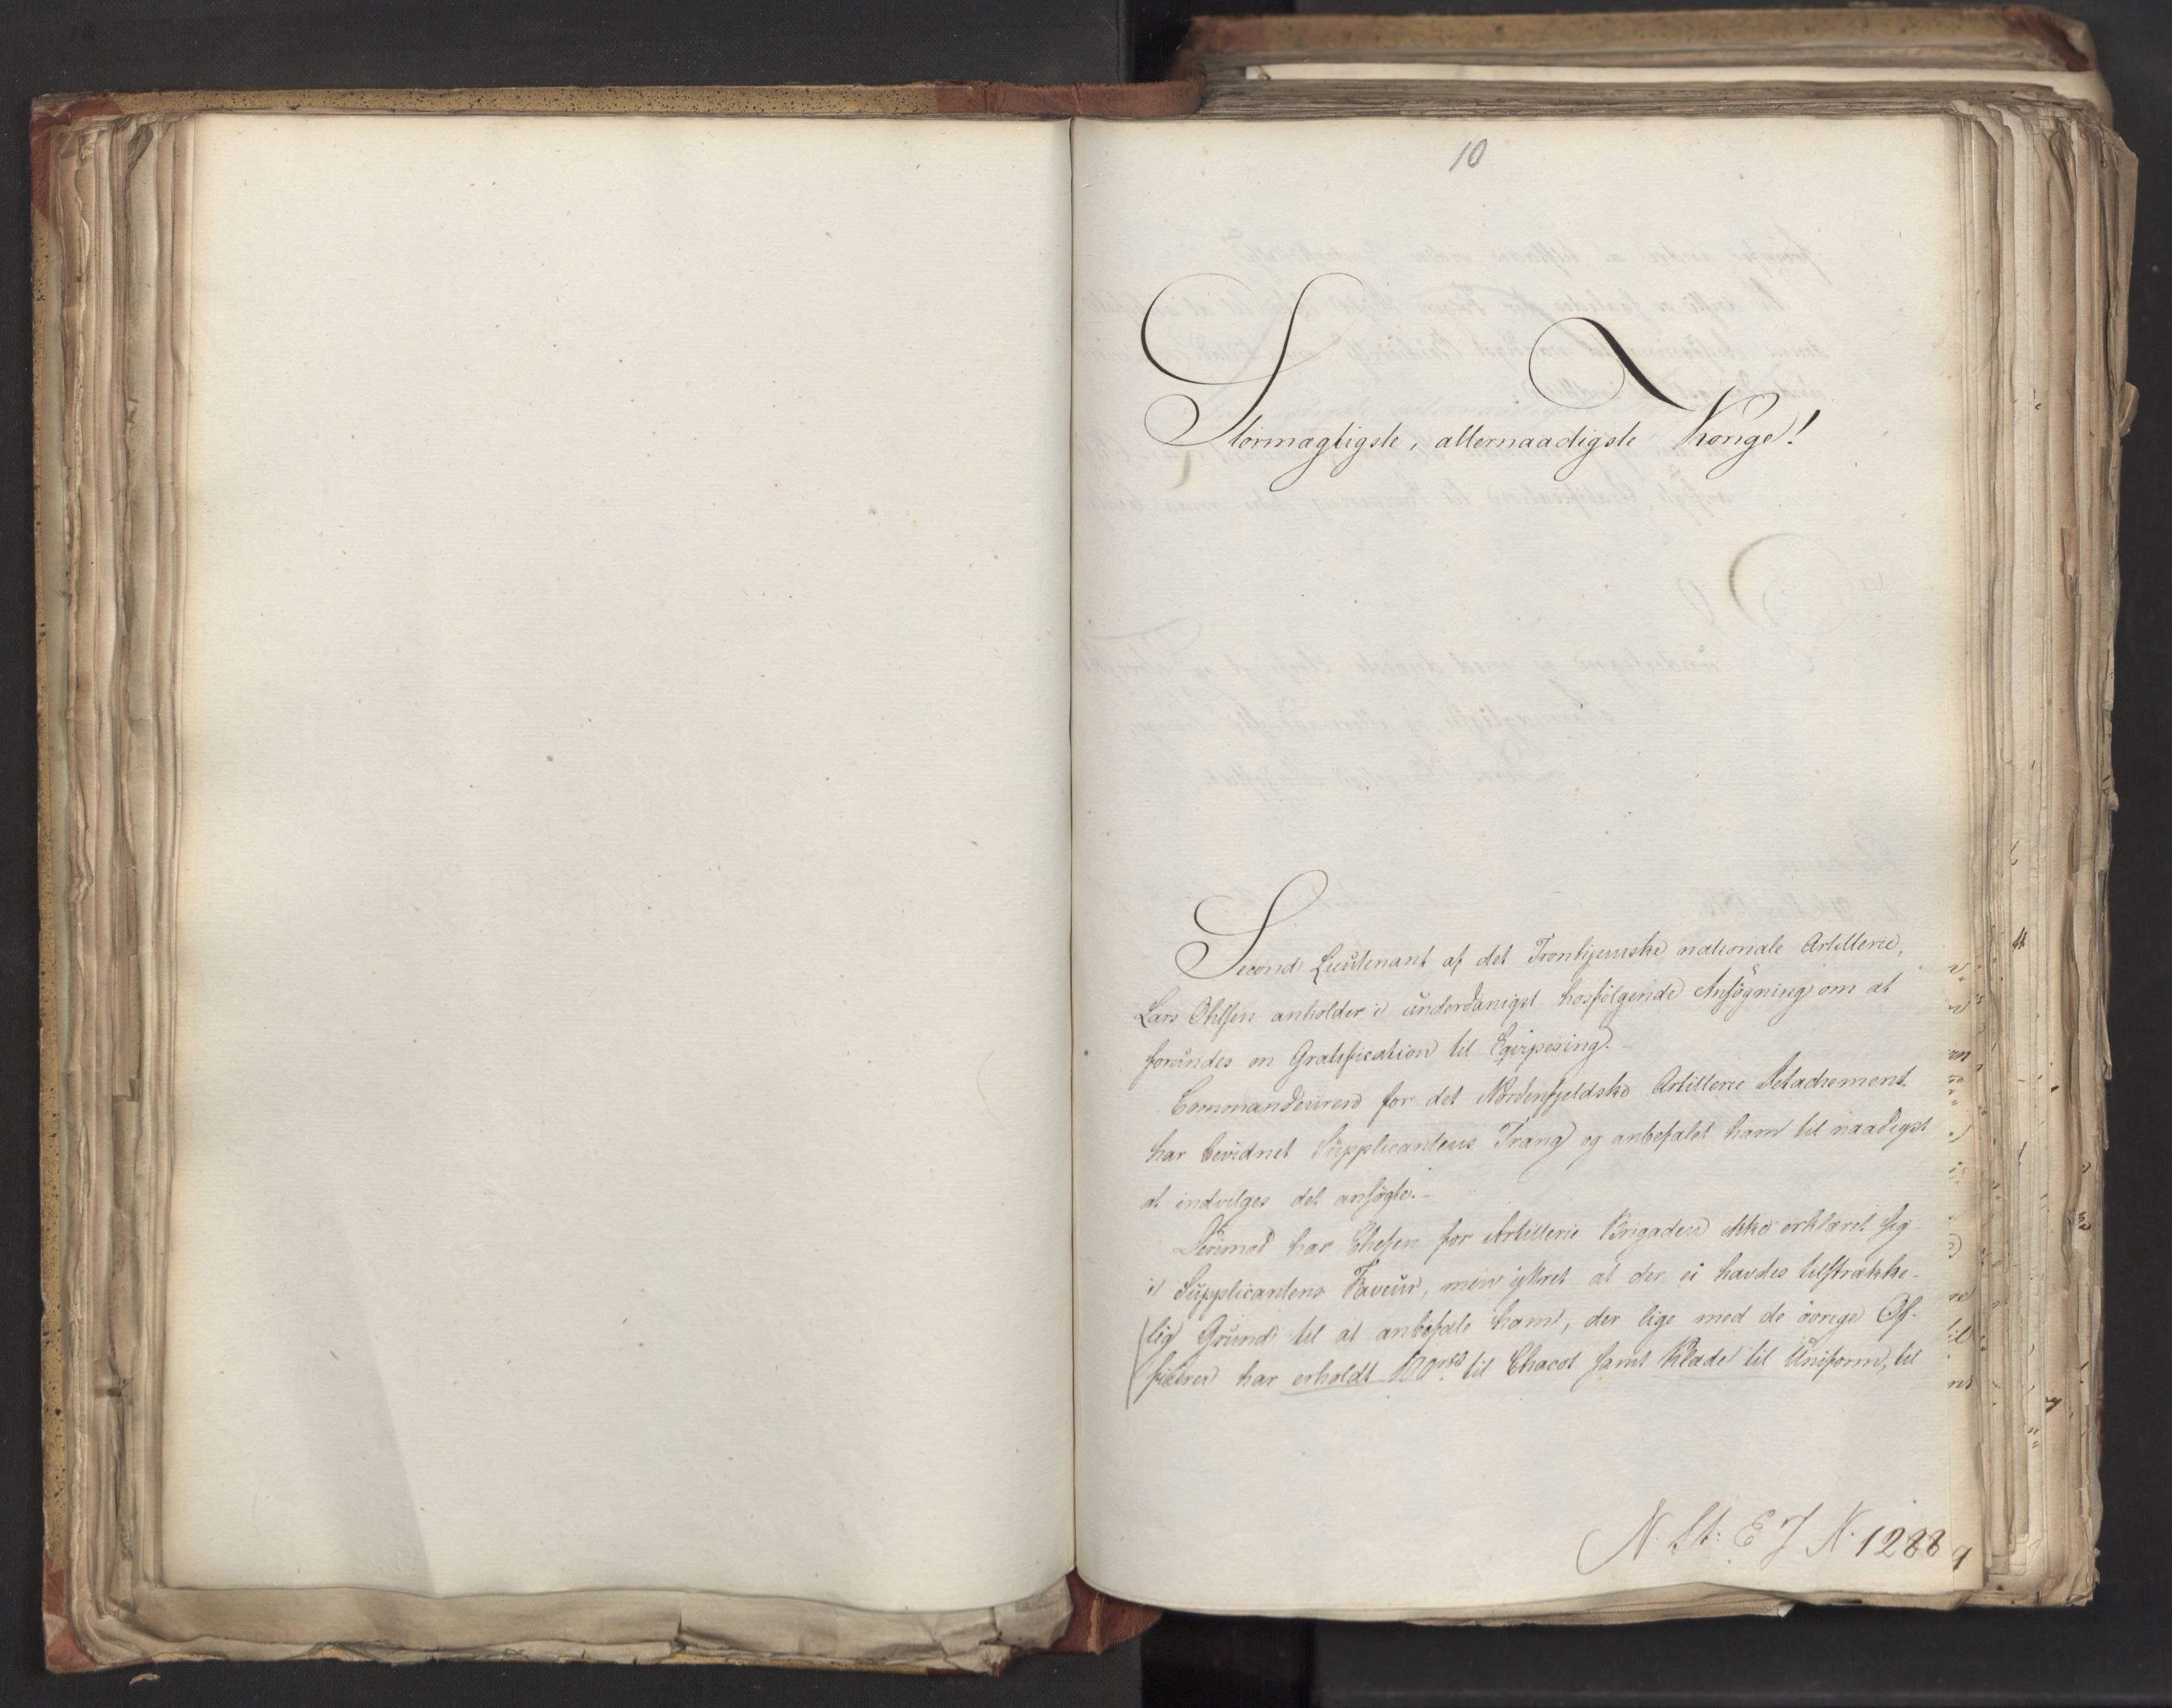 10
Stormægtigste, allernaadigste Konge!
Second Lieutenant af det Tronhjemske nationale Artillerie,
Lars Ohlsen anholder i underdanigst hosfølgende Ansøgning om at
forundes en Gratification til Eqvipering. -
Commandeuren for det Nordenfjeldske Artillerie Detachement
har bevidnet Supplicantens Trang og anbefalet ham til naadigst
at indvilges det ansøgte. -
Derimod har Chefen for Artillerie Brigaden ikke erklæret sig
i Supplicantens Faveur, men yttret at der ei havdes tilstrække-
lig Grund til at anbefale ham, der lige med de øvrige Of-
ficerer har erholdt 100 rbd. til Chacot samt Klæde til Uniform, til
N. St: E J N. 1288